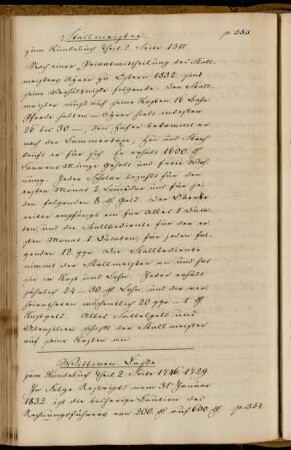 Stallmeister. p. 353
zum Kundebuch Theil 2. Seite 1511
Nach einer Privatmittheilung des Stall-
meisters Ayrer zu Ostern 1832 sind
seine Verhältnisse folgende. Der Stall-
meister muß auf seine Kosten 16 Bahn
Pferde halten – Ayrer hält indessen
26 bis 30 –, den Hafer bekommt er
nach der Kammertaxe, Heu und Stroh
kauft er für sich. Er erhält 1600 rf
Conv. Münze Gehalt und freie Woh-
nung. Jeder Scholar bezahlt für den
ersten Monat 2 Louisdor und für je-
den folgenden 8 rf Gold. Der Oberbe-
reiter empfängt ein für Alles 1 Duca-
ten, und die Stallbediente für den er-
sten Monat 1 Ducaten, für jeden fol-
genden 12 ggr. Die Stallbediente
nimmt der Stallmeister an und hat
sie in Kost und Lohn. Jeder erhält
jährlich 24–30 rf Lohn, und die ver-
heiratheten wöchentlich 20 ggr – 1 rf
Kostgeld. Alles Sattelzeug und
Utensilien schafft der Stallmeister
auf seine Kosten an.
Wittwen Casse
zum Kundebuch Theil 2 Seite 1746. 1729.
In Folge Rescripts vom 31 Januar
1832 ist die bisherige Caution des
Rechnungsführers von 200 rf auf 600 rf p. 354.